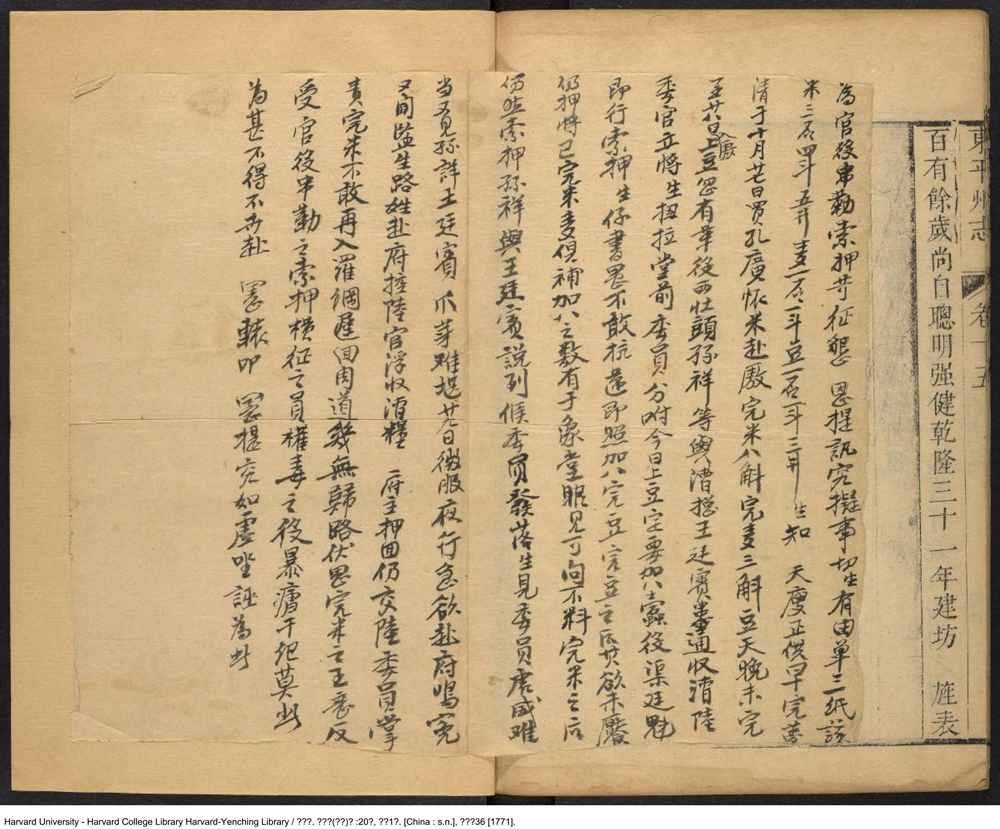 東平州志
卷十五
百有餘歲尚自聰明强健乾隆三十一年建坊 旌表
為官役串勒索押苛征懇 恩提訊究擬事切生有由單二紙該
米三石四斗五升麦一石一斗豆一石一斗三升 生知 天庾正供早完
清于十月廿日買孔廣懷米赴廒完米八斛完麦三斛豆天晚未完
至廿八日上廒豆忽有革役西壮頭孫祥等與漕揔王廷賓串通收漕陸
委官立将生扭拉堂前委員分咐今日上豆定要加八蠹役渠廷魁
即行索押生仔書愚不敢抗違即照加八完豆完豆之后其欲未
仍押将已完米麦俱補加八之数有于象堂眼見可问不料完米之后
仍然索押孫祥與王廷賓説列候委員發落生見委員虎威难
当又見孫祥王廷賓爪芽难堪廿八日微服夜行急欲赴府鳴冤
又闻監生路姓赴府控陸官浮收漕糧 府主押回仍交陸委員掌
責完米不敢再入羅網遲回周道幾無歸路伏思完米之王章反
受官役串勒之索押横征之員權毒之役暴瘤干犯莫此
為甚不得不奔赴 憲轅叩 憲提究如虛坐誣為此
Harvard University - Harvard College Library Harvard-Yenching Library / ???. ???(??)? :20?, ??1?. [China : s.n.], ???36 [1771].